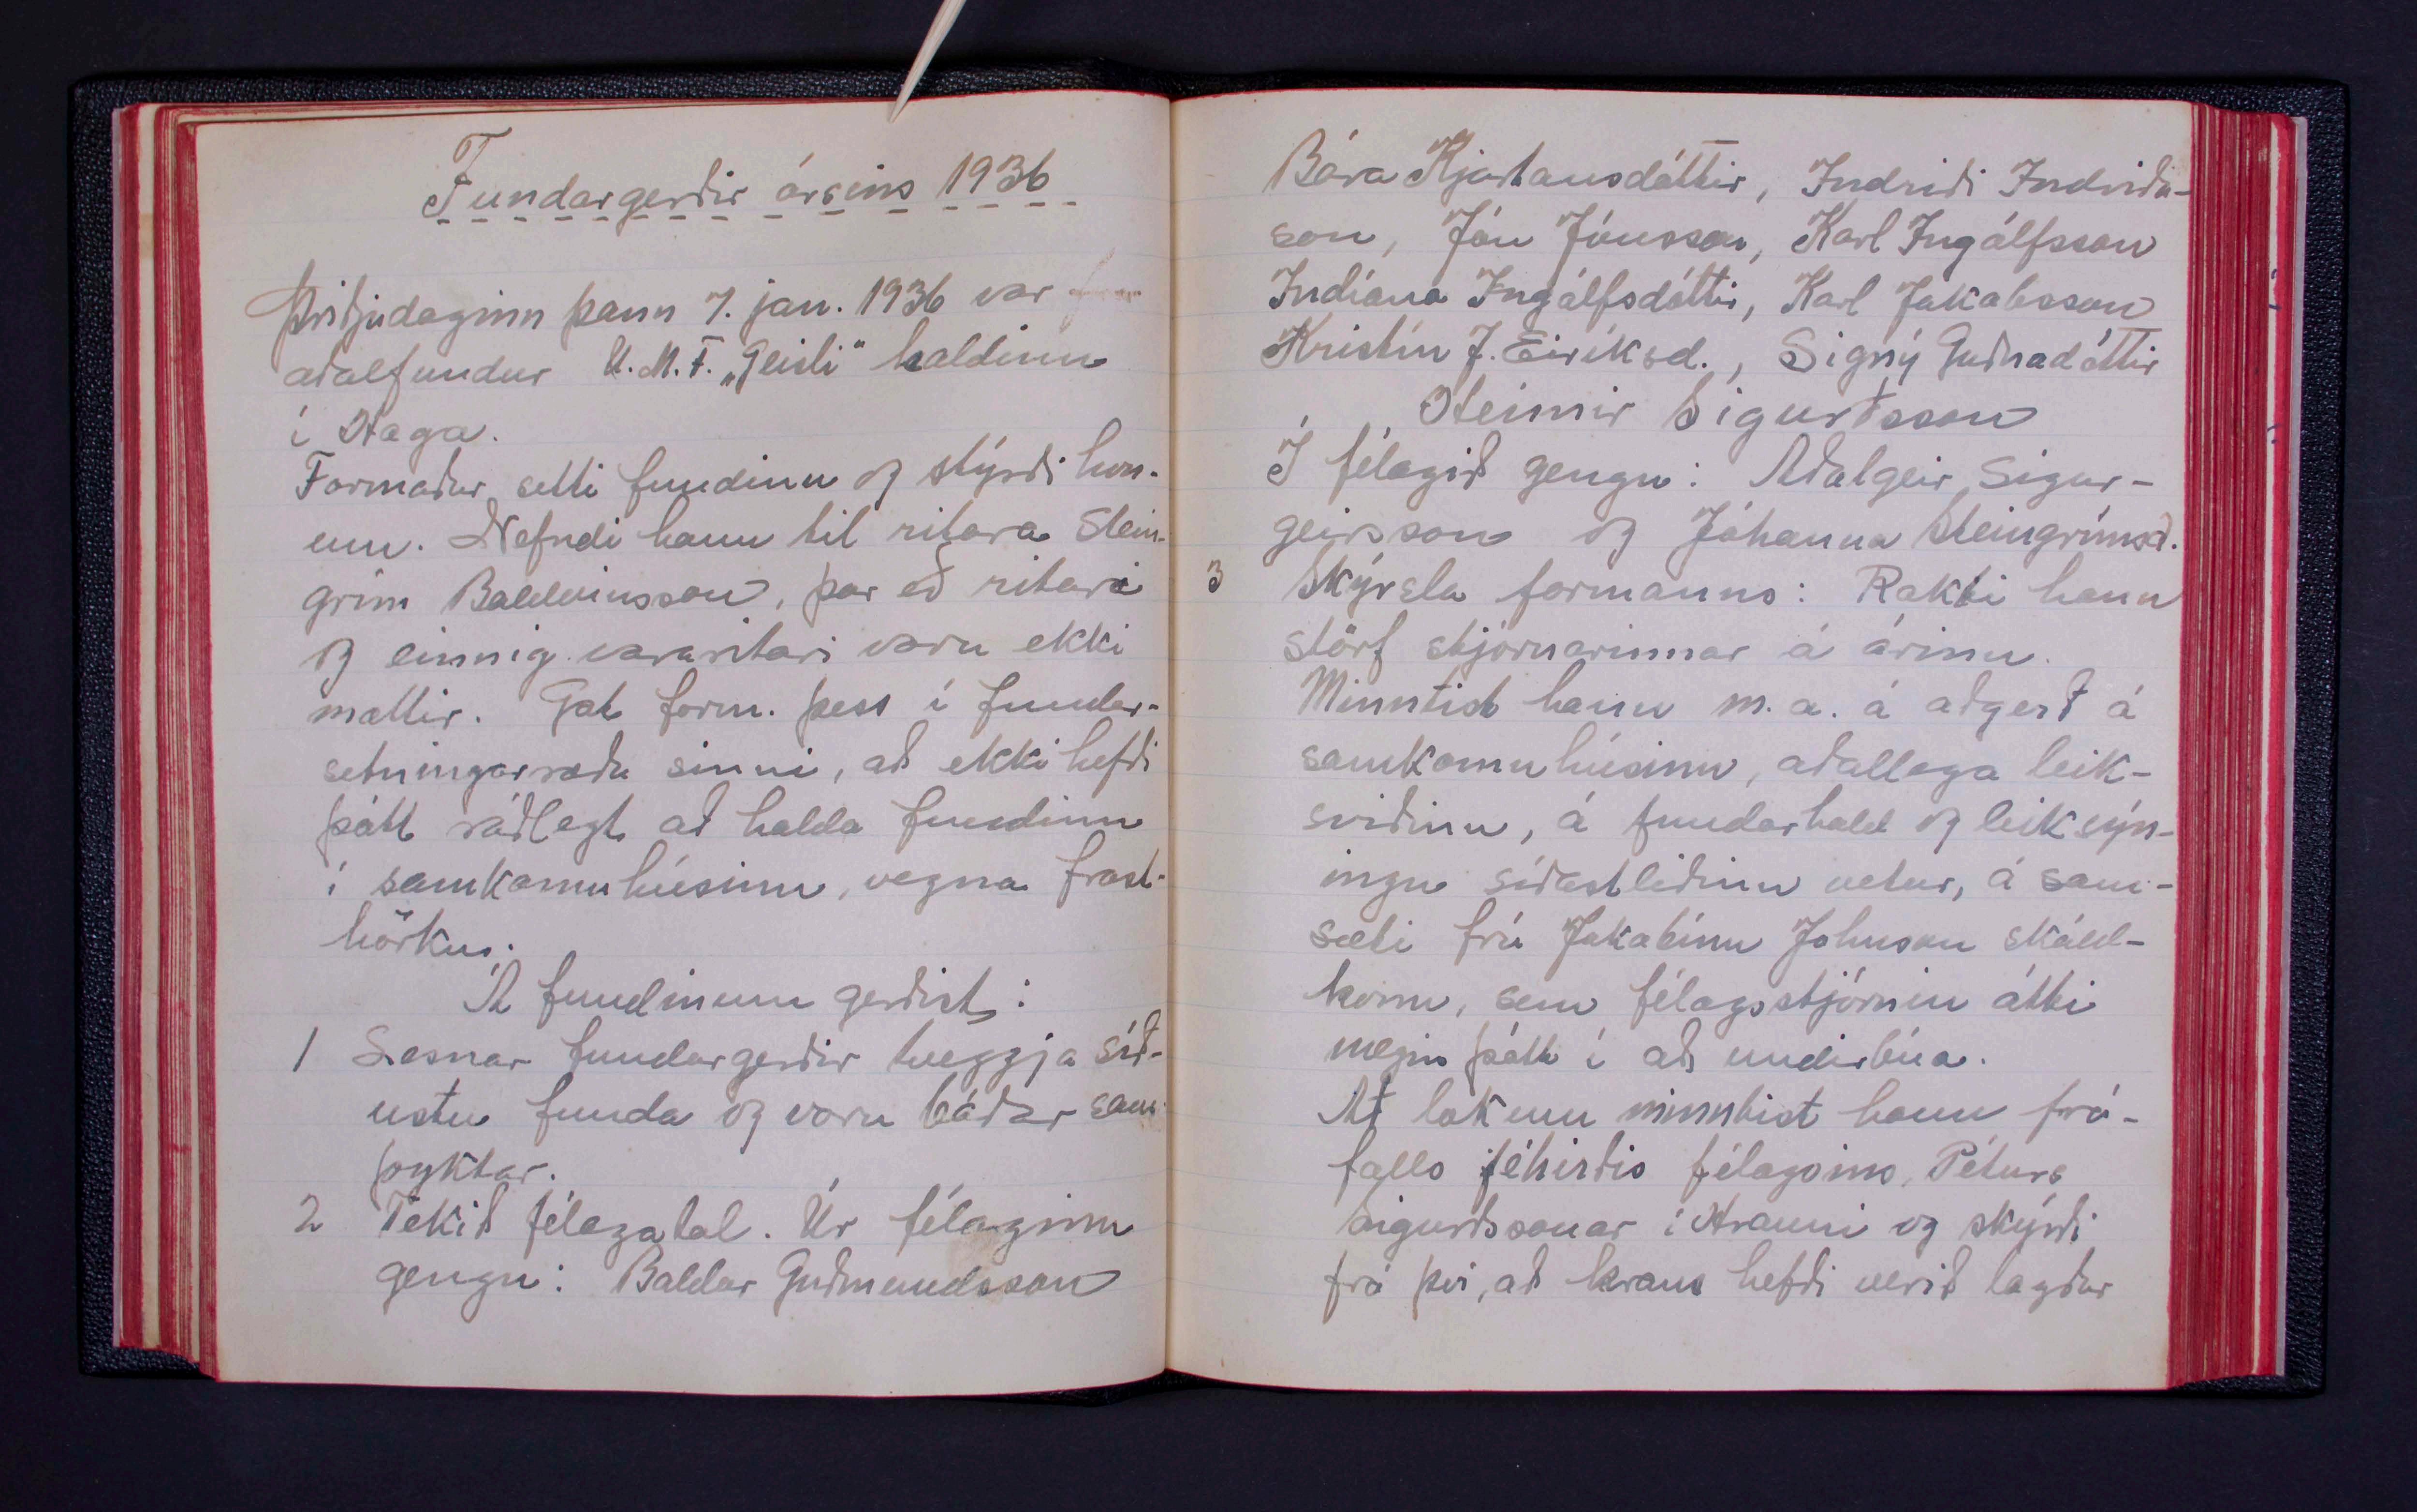 Fundargerðir ársins 1936
Þriðjudaginn þann 7. jan. 1936 var
aðalfundur U.M.F. „Geisli" haldinn
í Haga.
Formaður setti fundinn og stýrði hon-
um. Nefndi hann til ritara Stein-
grím Baldvinsson, þar eð ritari
og einnig vararitari voru ekki
mættir. Gat form. þess í fundar-
setningarræðu sinni, að ekki hefði
þótt ráðlegt að halda fundinn
í samkomuhúsinu, vegna frost-
hörku.
Á fundinum gerðist:
1 Lesnar fundargerðir tveggja síð-
ustu funda og voru báðar sam-
þyktar.
2 Tekið félagatal. Úr félaginu
gengu: Baldur Guðmundsson
Bára Kjartansdóttir, Indriði Indriða-
son, Jón Jónsson, Karl Ingólfsson
Indíana Ingólfsdóttir, Karl Jakobsson
Kristín J. Eiríksd., Signý Guðnadóttir
Heimir Sigurðsson
Í félagið gengu: Aðalgeir Sigur-
geirsson og Jóhanna Steingrímsd.
3 Skýrsla formanns: Rakti hann
störf stjórnarinnar á árinu.
Minntist hann m.a. á aðgerð á
samkomuhúsinu, aðallega leik-
sviðinu, á fundarhald og leiksýn-
ingu síðastliðinn vetur, á sam-
sæti frú Jakobínu Johnson skáld-
konu, sem félagsstjórnin átti
megin þátt í að undirbúa.
Að lokum minntist hann frá-
falls féhirðis félagsins, Péturs
Sigurðssonar í Hrauni og skýrði
frá því, að krans hefði verið lagður